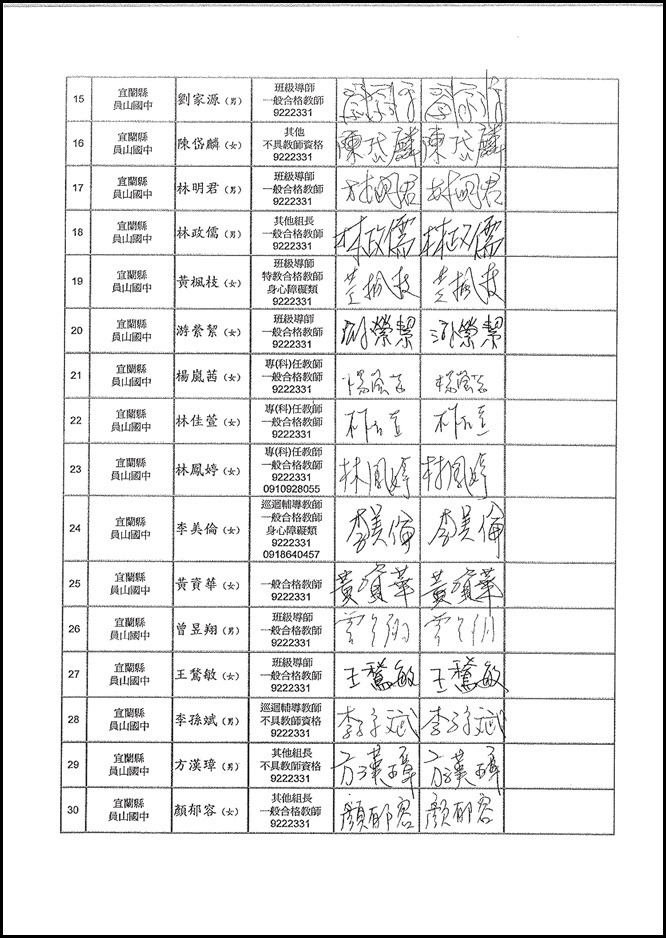 15 宜蘭縣 員山國中 劉家源（男） 班級導師 一般合格教師 9222331
16 宜蘭縣 員山國中 陳岱麟（女） 其他 不具教師資格 9222331 陳岱麟 陳岱麟
17 宜蘭縣 員山國中 林明君（男） 班級導師 一般合格教師 9222331 林明君 林明君
18 宜蘭縣 員山國中 林政儒（男） 其他組長 一般合格教師 9222331 林政儒 林政儒
19 宜蘭縣 員山國中 黃楓枝（女） 班級導師 特教合格教師 身心障礙類 9222331 黃楓枝 黃楓枝
20 宜蘭縣 員山國中 游縈絜（女） 班級導師 一般合格教師 9222331
21 宜蘭縣 員山國中 楊嵐茜（女） 專(科)任教師 一般合格教師 9222331
22 宜蘭縣 員山國中 林佳萱（女） 專(科)任教師 一般合格教師 9222331
23 宜蘭縣 員山國中 林鳳婷（女） 專(科)任教師 一般合格教師 9222331 0910928055 林鳳婷 林鳳婷
24 宜蘭縣 員山國中 李美倫（女） 巡迴輔導教師 一般合格教師 身心障礙類 9222331 0918640457 李美倫 李美倫
25 宜蘭縣 員山國中 黃資華（女） 一般合格教師 9222331 黃資華 黃資華
26 宜蘭縣 員山國中 曾昱翔（男） 班級導師 一般合格教師 9222331
27 宜蘭縣 員山國中 王騖敏（女） 班級導師 一般合格教師 9222331 王騖敏 王騖敏
28 宜蘭縣 員山國中 李孫斌（男） 巡迴輔導教師 不具教師資格 9222331 李孫斌 李孫斌
29 宜蘭縣 員山國中 方漢瑋（男） 其他組長 不具教師資格 9222331 方漢瑋 方漢瑋
30 宜蘭縣 員山國中 顏郁容（女） 其他組長 一般合格教師 9222331 顏郁容 顏郁容